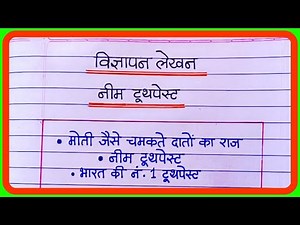 विज्ञापन लेखन
नीम टूथपेस्ट
• मोती जैसे चमकते दातों का राज
• नीम टूथपेस्ट
• भारत की नं. 1 टूथपेस्ट